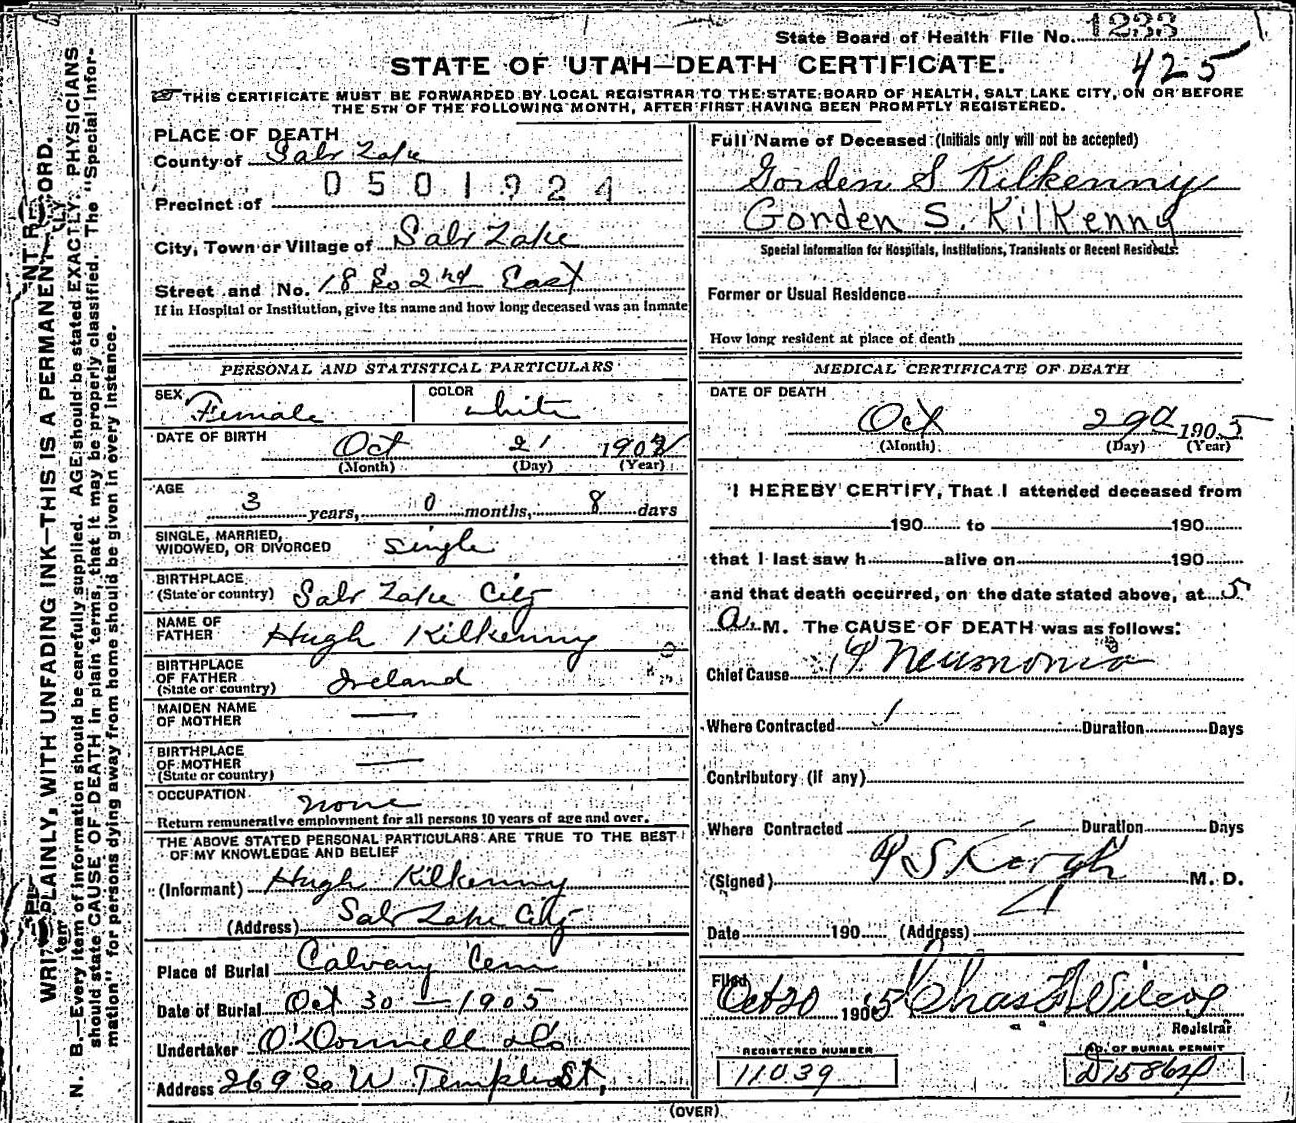 State Board of Health File No. 1233
425
STATE OF UTAH—DEATH CERTIFICATE.
THIS CERTIFICATE MUST BE FORWARDED BY LOCAL REGISTRAR TO THE STATE BOARD OF HEALTH, SALT LAKE CITY, ON OR BEFORE
THE 5TH OF THE FOLLOWING MONTH, AFTER FIRST HAVING BEEN PROMPTLY REGISTERED.
PLACE OF DEATH
County of Salt Lake
0501924
Precinct of
City, Town or Village of Salt Lake
Street and No. 18 So 2nd East
If in Hospital or Institution, give its name and how long deceased was an inmate
Full Name of Deceased (Initials only will not be accepted)
Gorden S Kilkenny
Gorden S. Kilkenny
Special Information for Hospitals, Institutions, Transients or Recent Residents.
Former or Usual Residence
How long resident at place of death
PERSONAL AND STATISTICAL PARTICULARS
SEX Female
COLOR white
DATE OF BIRTH Oct 21 1902
(Month) (Day) (Year)
AGE 3 years, 0 months, 8 days
SINGLE, MARRIED,
WIDOWED, OR DIVORCED single
BIRTHPLACE
(State or country) Salt Lake City
NAME OF
FATHER Hugh Kilkenny
BIRTHPLACE
OF FATHER
(State or country) Ireland
MAIDEN NAME
OF MOTHER —
BIRTHPLACE
OF MOTHER
(State or country) —
OCCUPATION none
Return remunerative employment for all persons 10 years of age and over.
THE ABOVE STATED PERSONAL PARTICULARS ARE TRUE TO THE BEST
OF MY KNOWLEDGE AND BELIEF
(Informant) Hugh Kilkenny
(Address) Salt Lake City
Place of Burial Calvary Cem
Date of Burial Oct 30 — 1905
Undertaker O'Donnell & Co
Address 269 So W Temple St,
MEDICAL CERTIFICATE OF DEATH
DATE OF DEATH
Oct 29 1905
(Month) (Day) (Year)
I HEREBY CERTIFY, That I attended deceased from
190 to 190
that I last saw h alive on 190
and that death occurred, on the date stated above, at 5
a. M. The CAUSE OF DEATH was as follows:
Chief Cause Pneumonia
Where Contracted Duration Days
Contributory (if any)
Where Contracted Duration Days
(Signed) M. D.
Date 190 (Address)
Filed Oct 30 1905 Chas Wilcox
Registrar
REGISTERED NUMBER
11039
NO. OF BURIAL PERMIT
(OVER)
N. B.—Every item of information should be carefully supplied. AGE should be stated EXACTLY. PHYSICIANS
should state CAUSE OF DEATH in plain terms, that it may be properly classified. The "Special Infor-
mation" for persons dying away from home should be given in every instance.
WRITE PLAINLY, WITH UNFADING INK—THIS IS A PERMANENT RECORD.